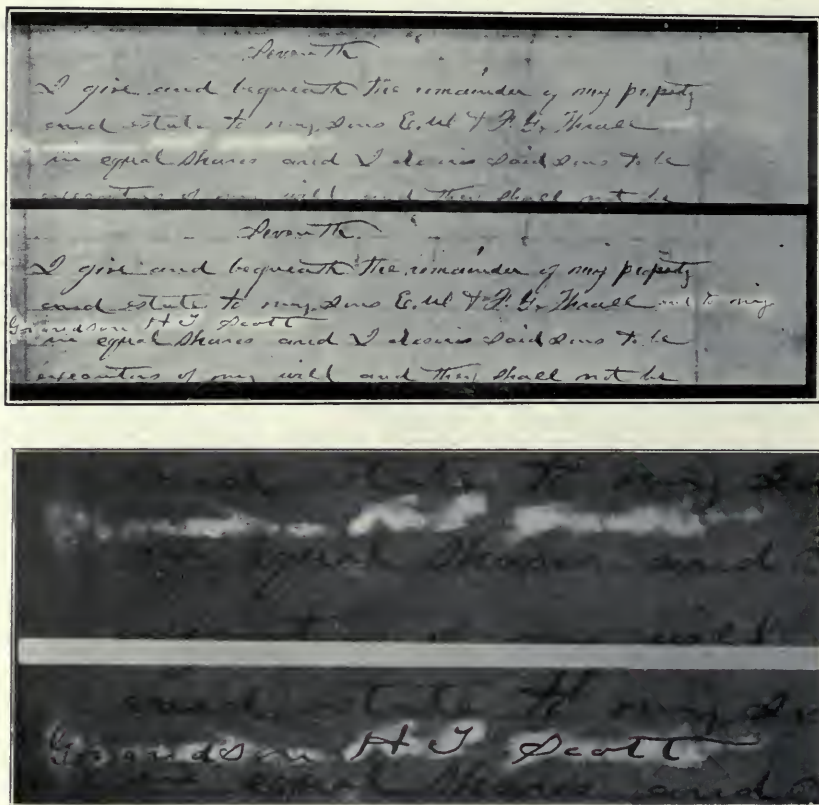 Seventh
I give and bequeath the remainder of my property
and estate to my sons E. W & F. G. Thrall
in equal shares and I desire said sons to be
executors of my will and they shall not be
Seventh.
I give and bequeath the remainder of my property
and estate to my sons E. W & F. G. Thrall and to my
Grandson H T Scott
in equal shares and I desire said sons to be
executors of my will and they shall not be
and estate to my
equal shares and
will
and estate to my
Grandson H T Scott
equal shares and